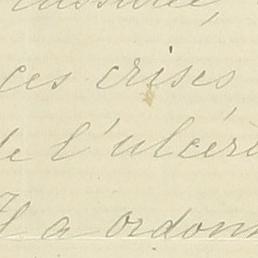 ces crises
de l'ulcère
Il a ordonn